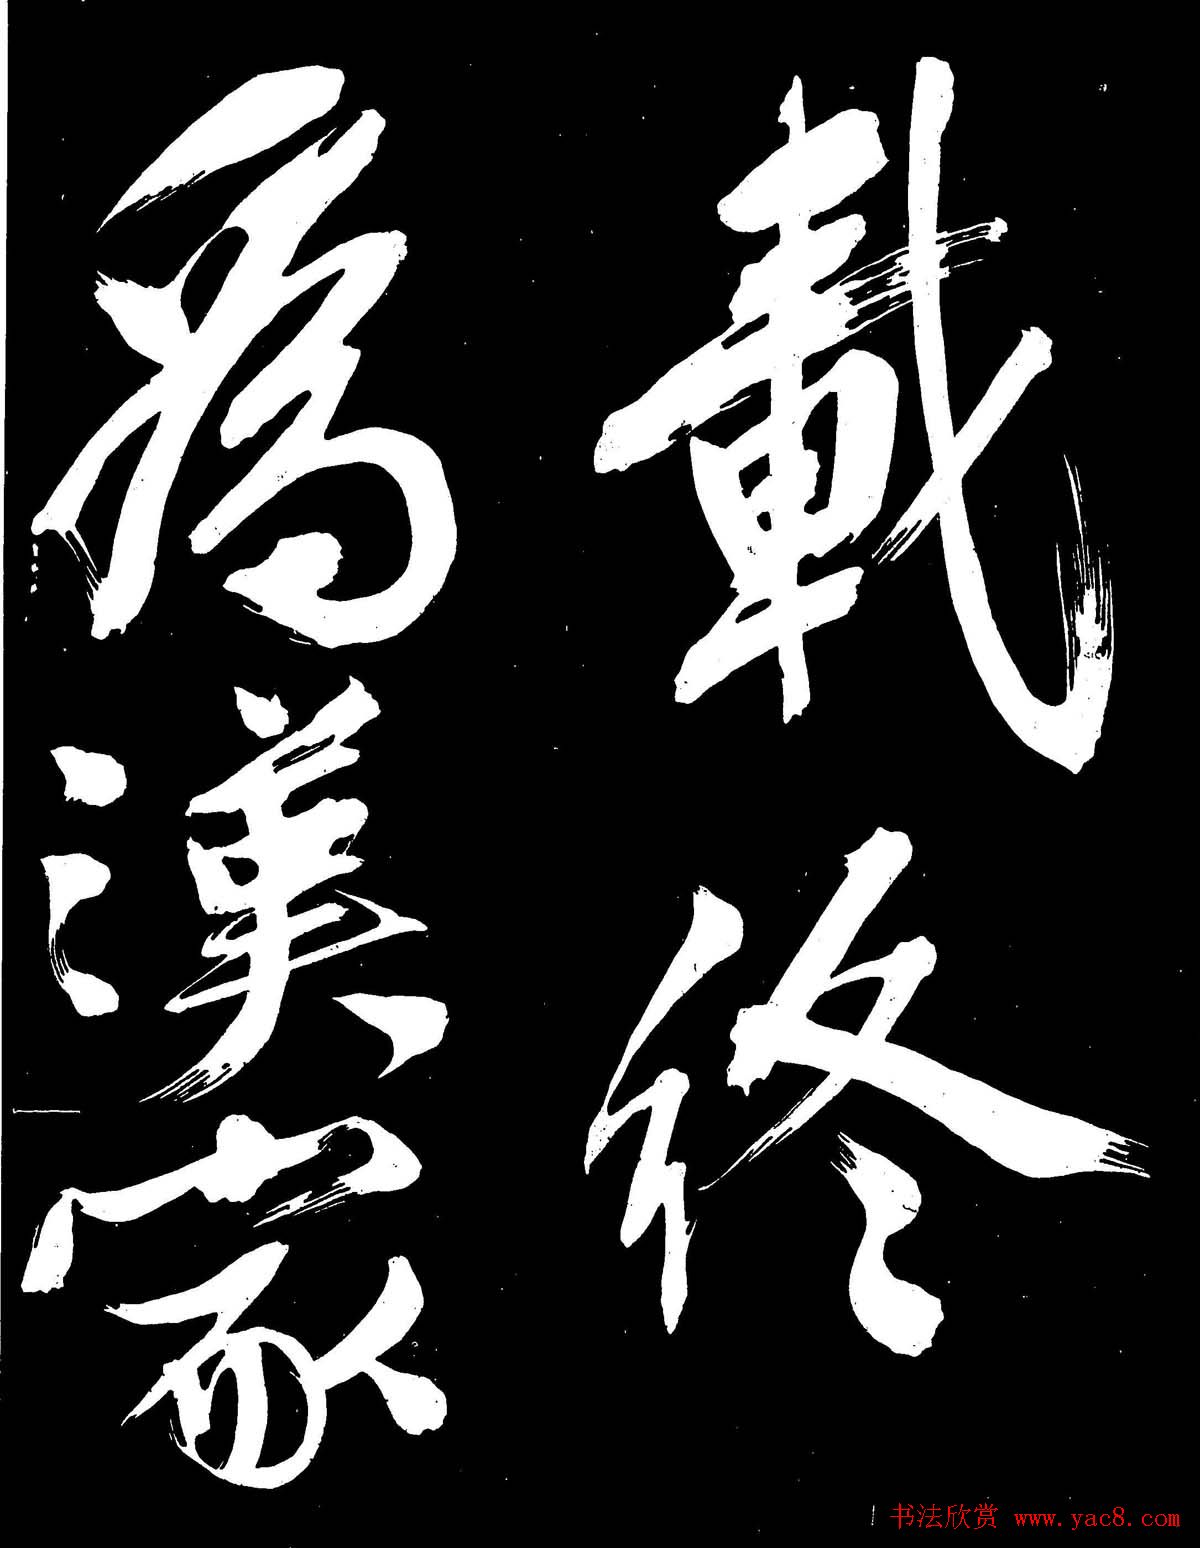 載終
為漢家
书法欣赏 www.yac8.com